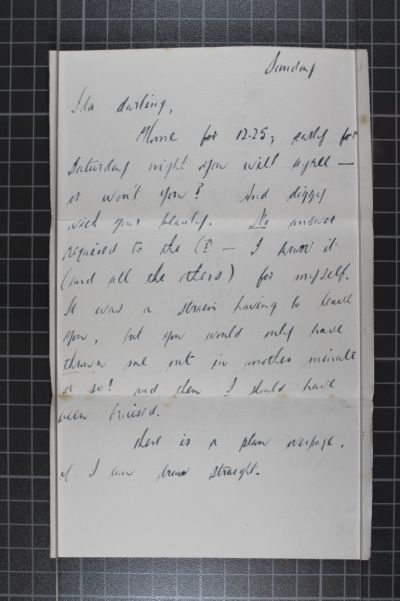 Sunday
Ida darling,
Home for 12.25; early for
Saturday night you will agree —
or won't you? And dizzy
with your beauty. No answer
required to the (? — I know it
(and all the others) for myself.
It was a strain having to leave
you, but you would only have
thrown me out in another minute
or so! and then I should have
been bruised.
There is a plan overpage,
if I can draw straight.